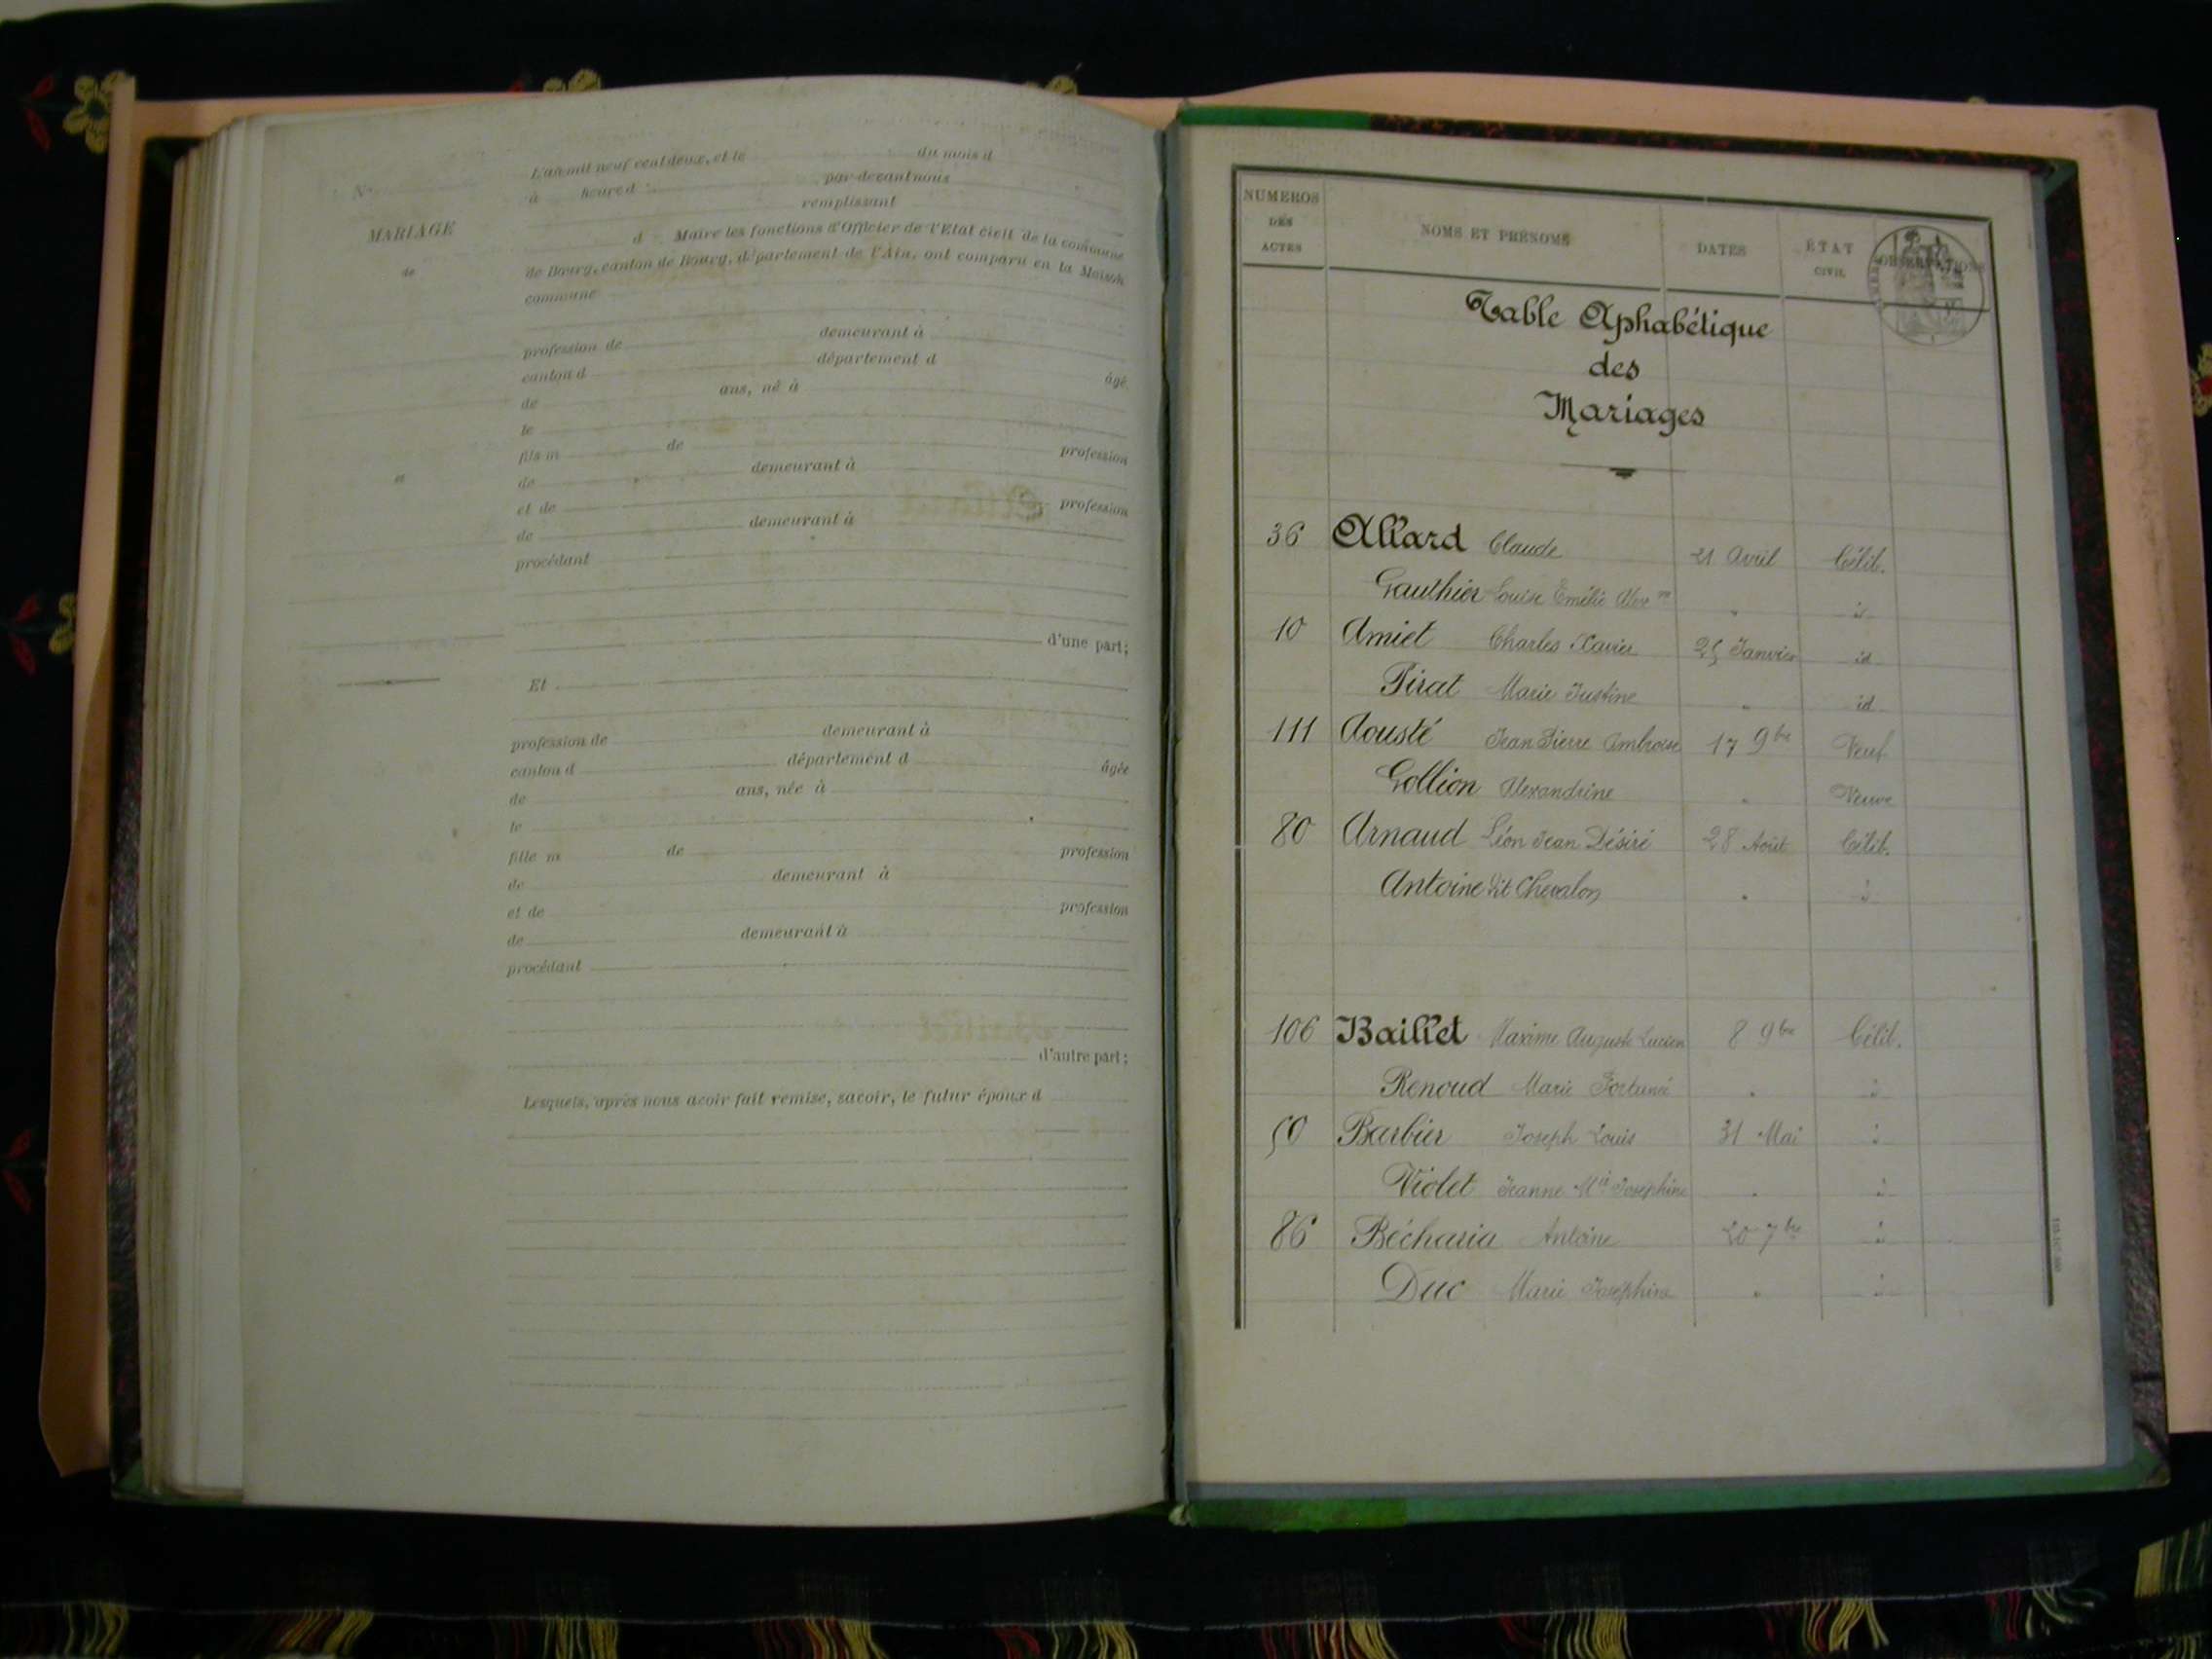 N°
MARIAGE
de
et
L'an mil neuf cent deux, et le du mois d
à heure d par-devant nous
remplissant
d Maire les fonctions d'Officier de l'Etat civil de la commune
de Bourg, canton de Bourg, département de l'Ain, ont comparu en la Maison
commune
profession de demeurant à
canton d département d âgé
de ans, né à
le
fils m de profession
de demeurant à
et de profession
de demeurant à
procédant
d'une part;
Et
profession de demeurant à
canton d département d âgée
de ans, née à
le
fille m de profession
de demeurant à
et de profession
de demeurant à
procédant
d'autre part;
Lesquels, après nous avoir fait remise, savoir, le futur époux d
NUMEROS DES ACTES NOMS ET PRÉNOMS DATES ÉTAT CIVIL OBSERVATIONS
Table Aphabétique
des
Mariages
36 Allard Claude 21 Avril Célib.
Gauthier Louise Emélie " id
10 Amiet Charles Xavier 25 Janvier id
Pirat Marie Justine " id
111 Aousté Jean Pierre Ambroise 17 9bre Veuf
Gollion Alexandrine " Veuve
80 Arnaud Léon Jean Désiré 28 Août Célib.
Antoine dit Chevalon " id
106 Baillet Maxime Auguste Lucien 8 9bre Célib.
Renoud Marie Fortunée " id
50 Barbier Joseph Louis 31 Mai id
Violet Jeanne Mie Joséphine " id
86 Bécharia Antoine 20 7bre id
Duc Marie Joséphine " id